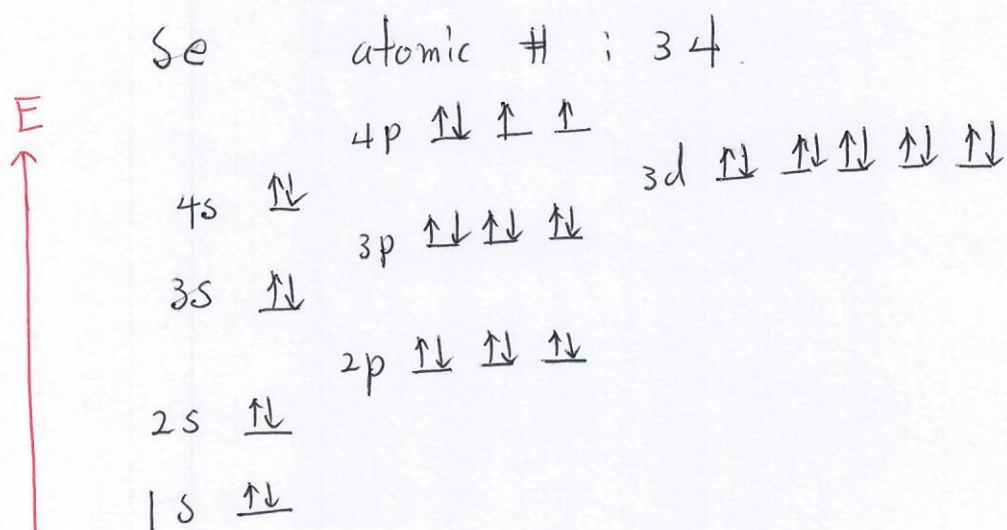 Se atomic # : 34.
E
4p ↑↓ ↑ ↑
3d ↑↓ ↑↓ ↑↓ ↑↓ ↑↓
4s ↑↓
3p ↑↓ ↑↓ ↑↓
3s ↑↓
2p ↑↓ ↑↓ ↑↓
2s ↑↓
1s ↑↓